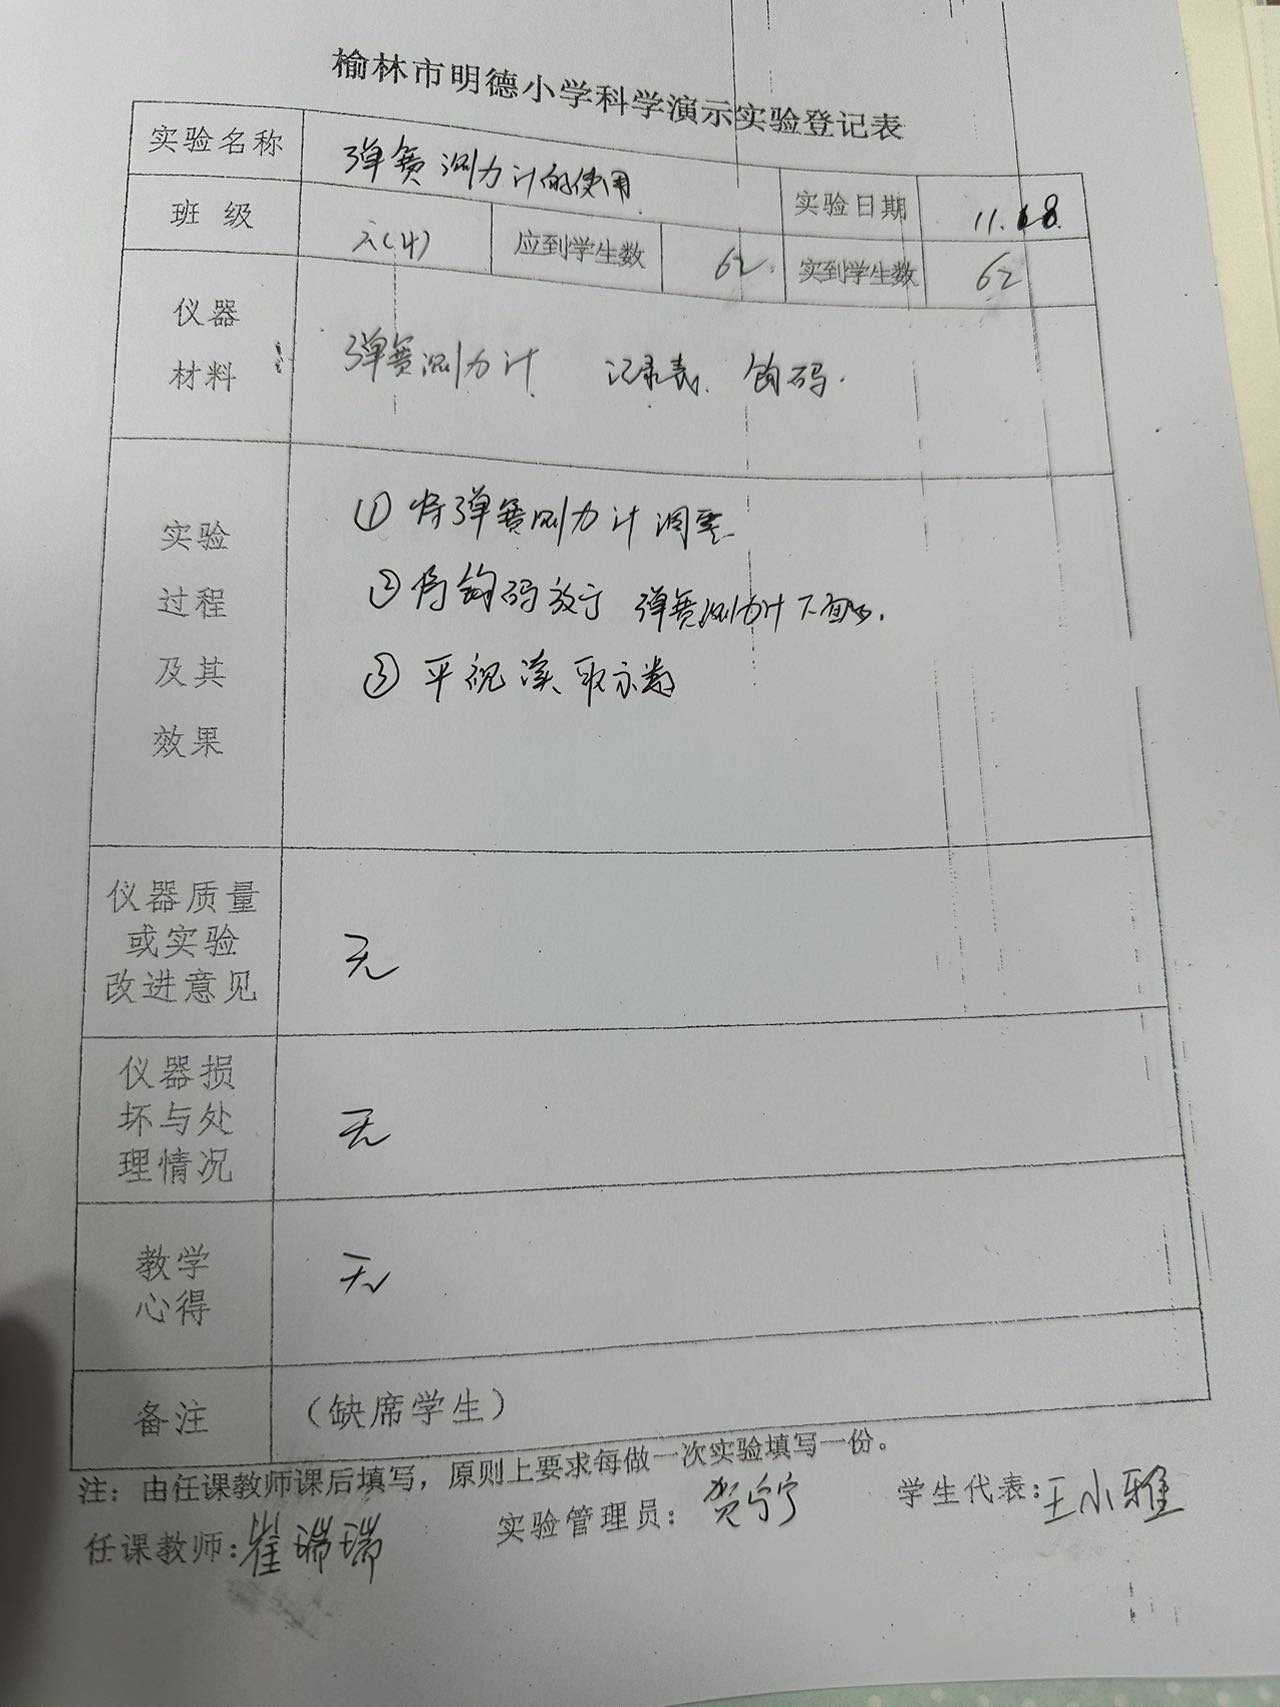 榆林市明德小学科学演示实验登记表
实验名称 弹簧测力计的使用 实验日期 11.18
班 级 六(4) 应到学生数 62. 实到学生数 62
仪器
材料
弹簧测力计 记录表. 钩码.
实验
过程
及其
效果
① 将弹簧测力计调零
② 将钩码放于 弹簧测力计下面.
③ 平视读取示数
仪器质量
或实验
改进意见
无
仪器损
坏与处
理情况
无
教学
心得
无
备注 (缺席学生)
注：由任课教师课后填写，原则上要求每做一次实验填写一份。
任课教师:崔瑞瑞 实验管理员：贺宁宁 学生代表:王小雅